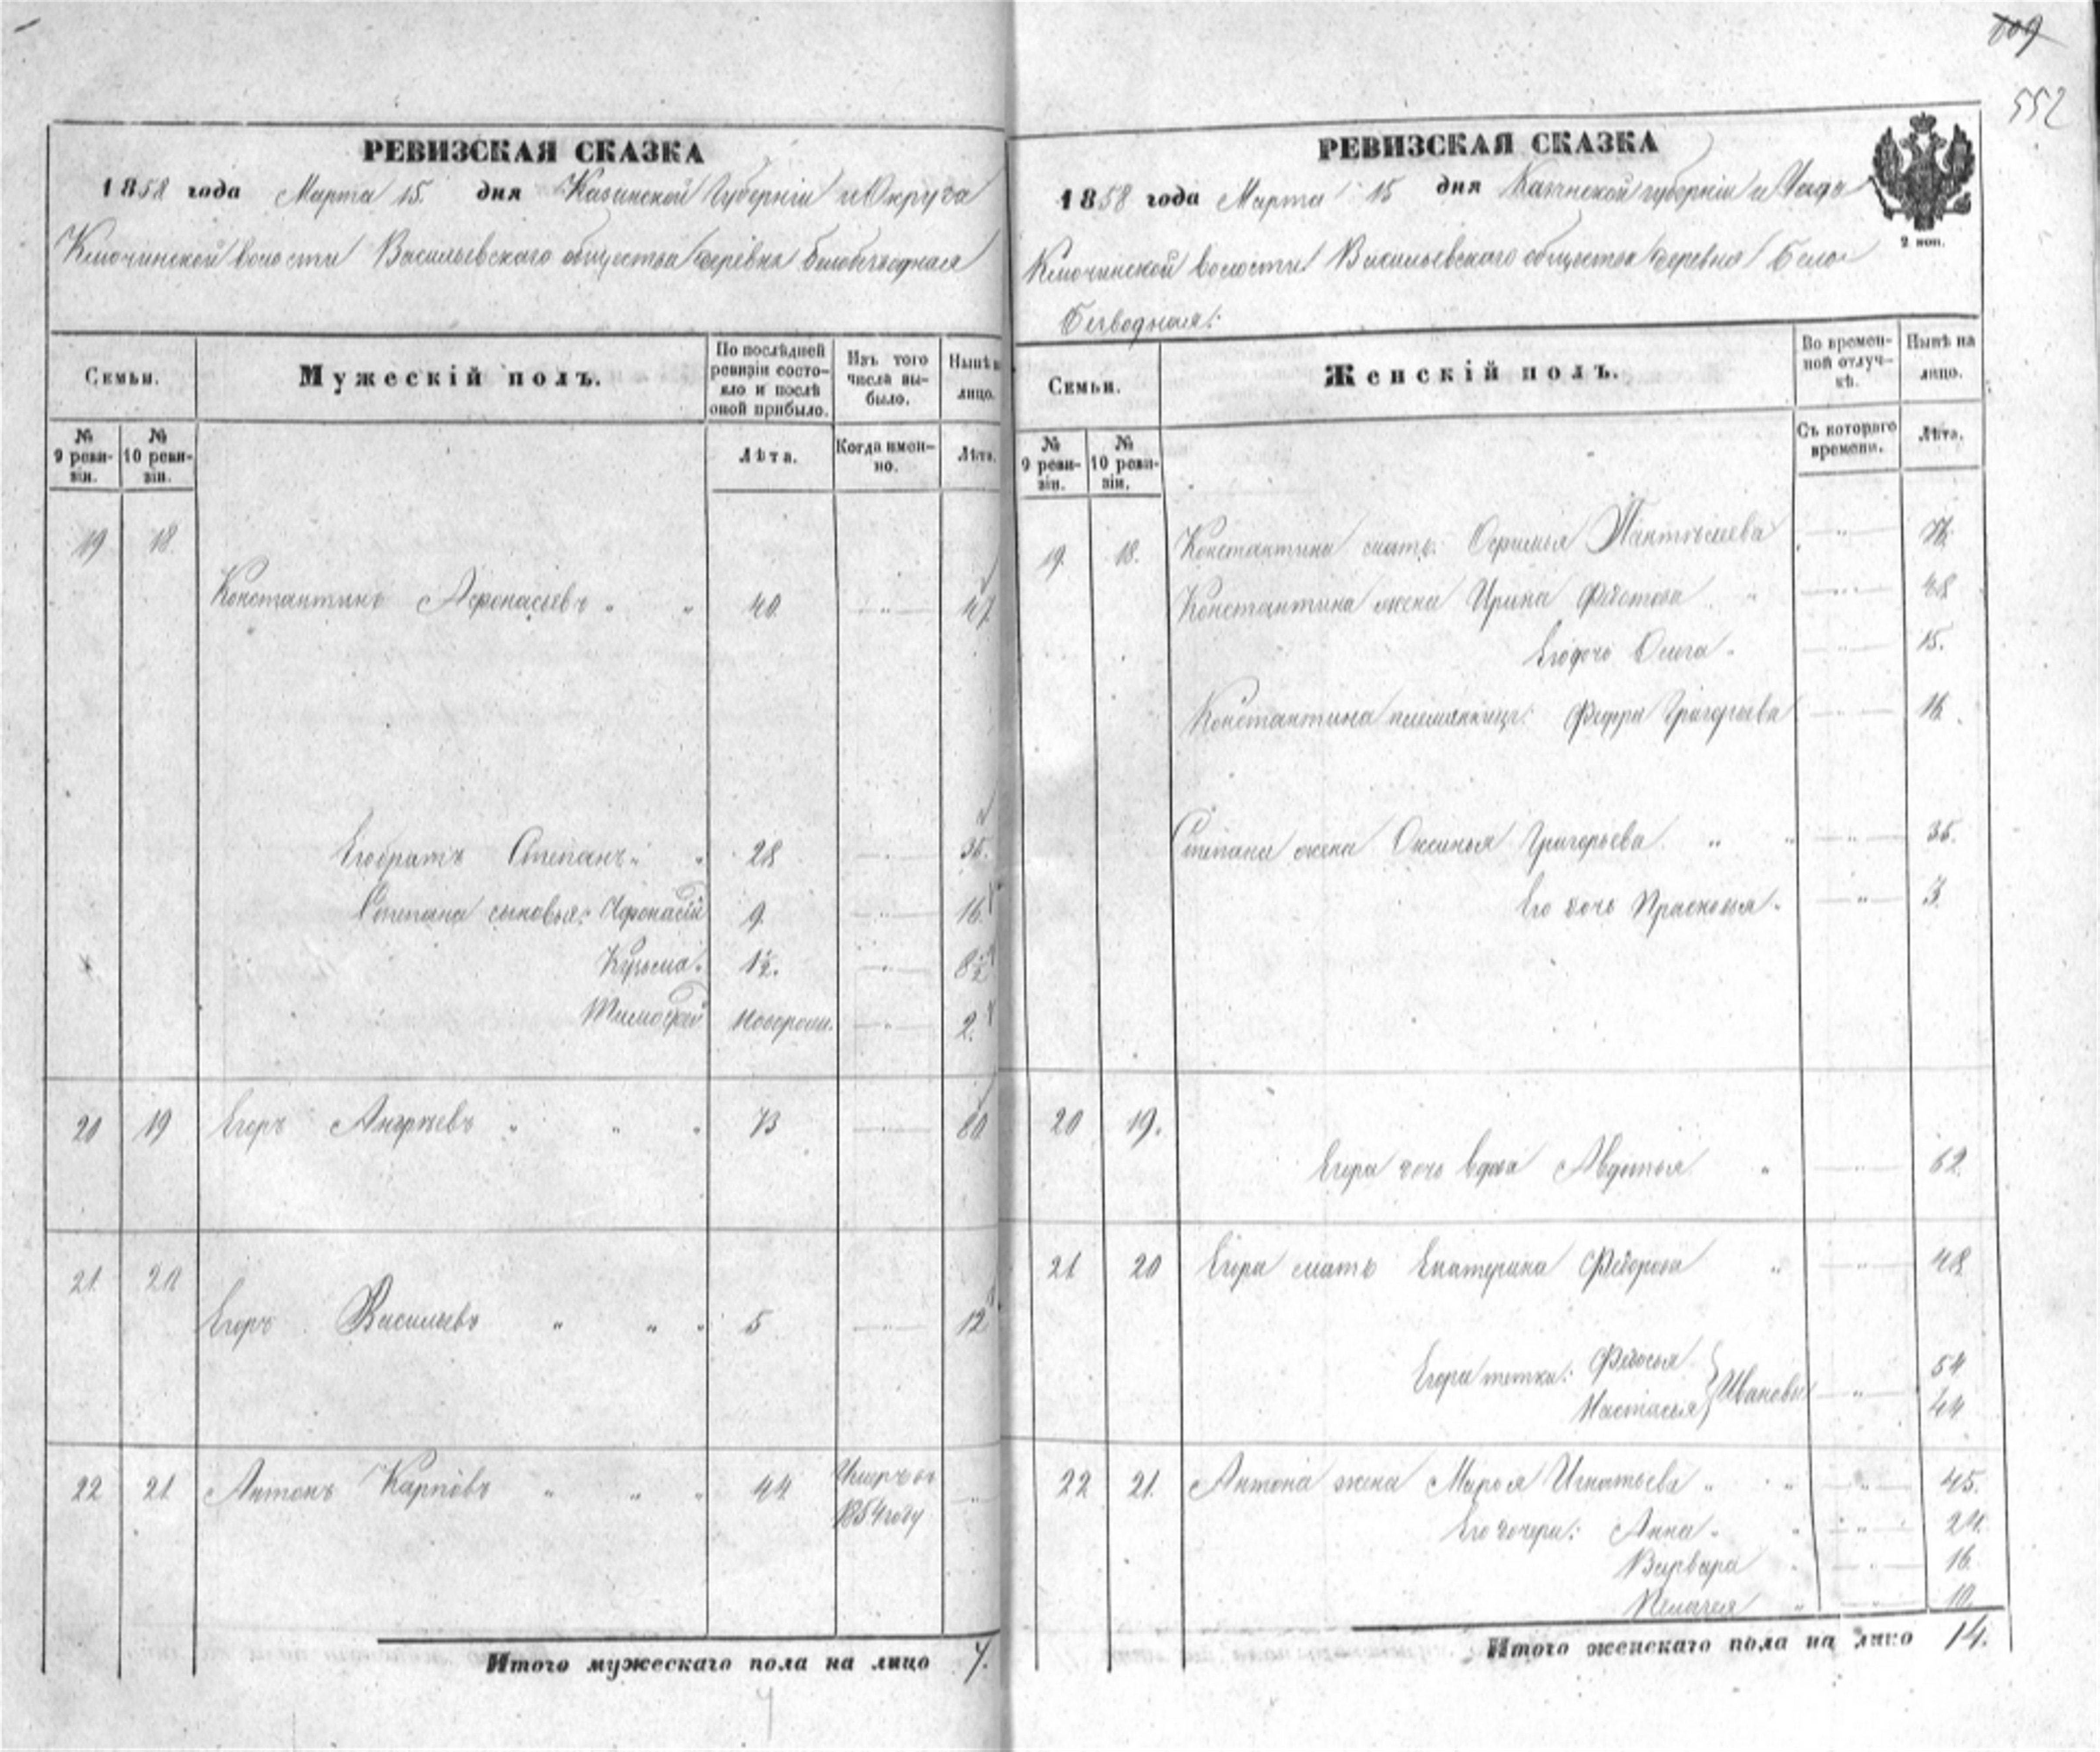 109
552
РЕВИЗСКАЯ СКАЗКА
1858 года Марта 15. дня Казанской Губерніи и Округа
Ключинской волости Васильевскаго общества деревня Белобезводная
Семьи.
Мужескій полъ.
По послѣдней ревизіи состояло и послѣ оной прибыло.
Изъ того числа выбыло.
Нынѣ на лицо.
№ 9 ревизіи.
№ 10 ревизіи.
Лѣта.
Когда именно.
Лѣта.
19 18.
Константинъ Афонасьевъ „ „ 40. „ 47.
Его братъ Степанъ „ „ 28 „ 35.
Степана сыновья: Афонасій 9. „ 16.
Кузьма. 1½. „ 8½
Тимофей новорожд. „ 2.
20 19 Егоръ Андреевъ „ „ „ 73 „ 80
21. 20
Егоръ Васильевъ „ „ „ 5 „ 12
22 21. Антонъ Карповъ „ „ „ 44 Умеръ въ 1854 году „
Итого мужескаго пола на лицо 7.
РЕВИЗСКАЯ СКАЗКА
1858 года Марта 15 дня Казанской губерніи и Уезда
2 коп.
Ключинской волости Васильевскаго общества деревня Бело
Безводная:
Семьи.
Женскій полъ.
Во временной отлучкѣ.
Нынѣ на лицо.
№ 9 ревизіи.
№ 10 ревизіи.
Съ котораго времени.
Лѣта.
19. 18. Константина мать: Пантелеева „ 76.
Константина жена Ирина Федотова „ „ 48
Его дочь Олга „ 15.
Константина племянница: Григорьева „ 16.
Степана жена Оксинья Григорьева. „ „ „ 35.
Его дочь Прасковья. „ 3.
20 19.
Егора дочь вдова Авдотья „ „ 62.
21 20 Егора мать Екатерина Федорова „ „ 48
Егора тетки: Федосья 54
Настасья } Ивановы „ 44
22 21. Антона жена Марья Игнатьева „ „ „ 45.
Его дочери: Анна „ „ „ 24.
Варвара „ „ 16.
Пелагея „ „ 10.
Итого женскаго пола на лицо 14.